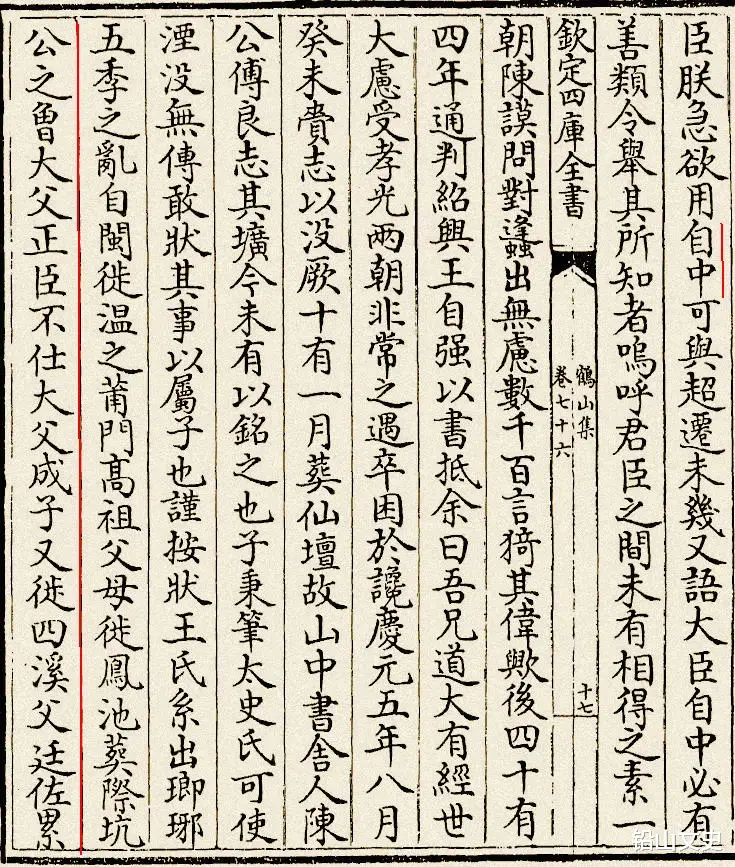 臣朕急欲用自中可與超遷未幾又語大臣自中必有
善類令舉其所知者嗚呼君臣之間未有相得之素一
欽定四庫全書
鶴山集
卷七十六
十七
朝陳謨問對蠭出無慮數千百言猗其偉歟後四十有
四年通判紹興王自强以書抵余曰吾兄道大有經世
大慮受孝光兩朝非常之遇卒困於讒慶元五年八月
癸未賫志以没厥十有一月葬仙壇故山中書舍人陳
公傅良志其壙今未有以銘之也子秉筆太史氏可使
湮没無傳敢狀其事以屬子也謹按狀王氏系出瑯琊
五季之亂自閩徙温之莆門高祖父母徙鳳池葬際坑
公之曾大父正臣不仕大父成子又徙四溪父廷佐累
铅山文史